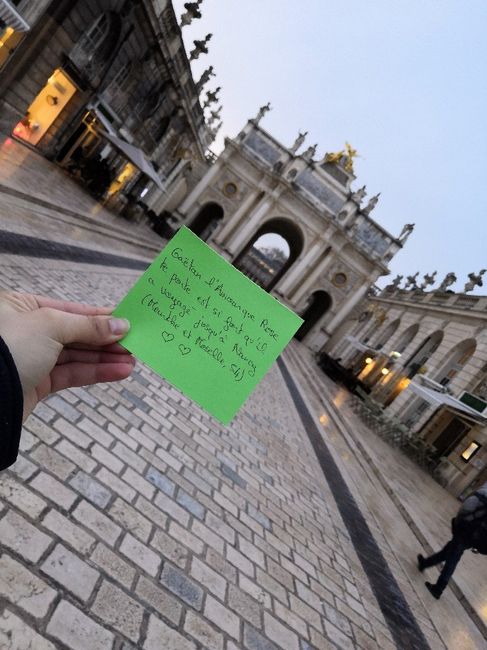 Gaëtan l'Amour que Rose
te porte est si fort qu'il
a voyagé jusqu'à Nancy
(Meurthe et Moselle, 54)